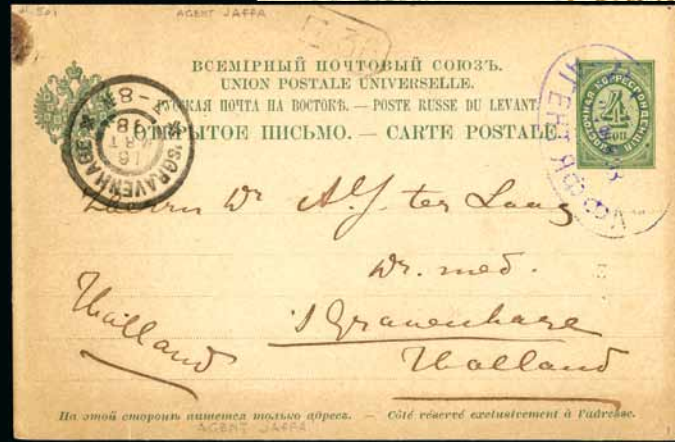 AGENT JAFFA
ВСЕМІРНЫЙ ПОЧТОВЫЙ СОЮЗЪ.
UNION POSTALE UNIVERSELLE.
РУССКАЯ ПОЧТА НА ВОСТОКѢ. — POSTE RUSSE DU LEVANT.
ОТКРЫТОЕ ПИСЬМО. — CARTE POSTALE.
ВОСТОЧНАЯ КОРРЕСПОНДЕНЦІЯ
4
КОП
'SGRAVENHAGE
16 MRT 98
АГЕНТ ЯФФА
Herrn Dr A. J. ter Laag
Dr. med.
's Gravenhage
Holland
Holland
На этой сторонѣ пишется только адресъ. — Côté réservé exclusivement à l'adresse.
AGENT JAFFA